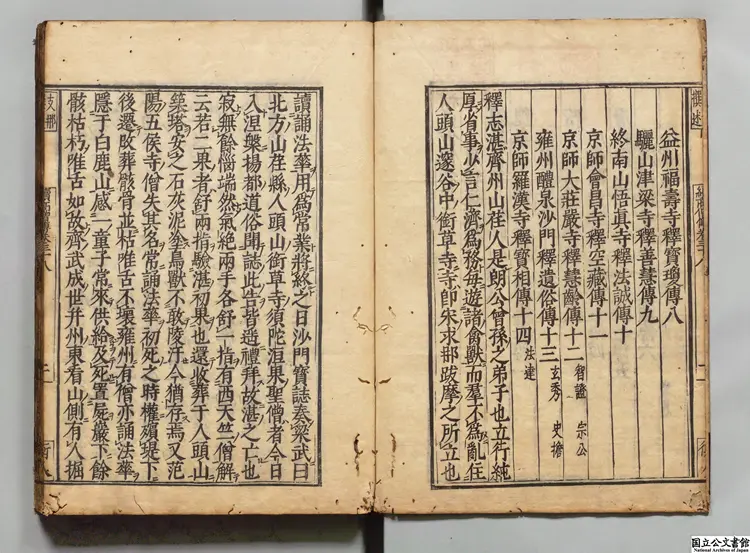 益州福壽寺釋寶瓊傳八
驪山津梁寺釋善慧傳九
終南山悟眞寺釋法誠傳十
京師會昌寺釋空藏傳十一
京師大莊嚴寺釋慧齡傳十二 智證 宗公
雍州醴泉沙門釋遺俗傳十三 玄秀 史擔
京師羅漢寺釋寶相傳十四 法達
釋志湛齊州山茌人是朗公曾孫之弟子也立行純
厚省事少言仁濟爲務毎遊諸禽獸而羣不爲亂住
人頭山邃谷中銜草寺寺卽宋求那跋摩之所立也
讀誦法華用爲常業將終之日沙門寶誌奏梁武曰
北方山茌縣人頭山銜草寺須陀洹果聖僧者今日
入涅槃揚都道俗聞誌此告皆遥禮拜故湛之亡也
寂無餘惱端然氣絶兩手各舒一指有西天竺僧解
云若二果者舒兩指驗湛初果也還收葬于人頭山
築塔安之石灰泥塗鳥獸不敢陵汙今猶存焉又范
陽五侯寺僧失其名常誦法華初死之時權殯堤下
後遷改葬骸骨並枯唯舌不壞雍州有僧亦誦法華
隱于白鹿山感一童子常來供給及死置屍巖下餘
骸枯朽唯舌如故齊武成世幷州東看山側有人掘
國立公文書館
National Archives of Japan